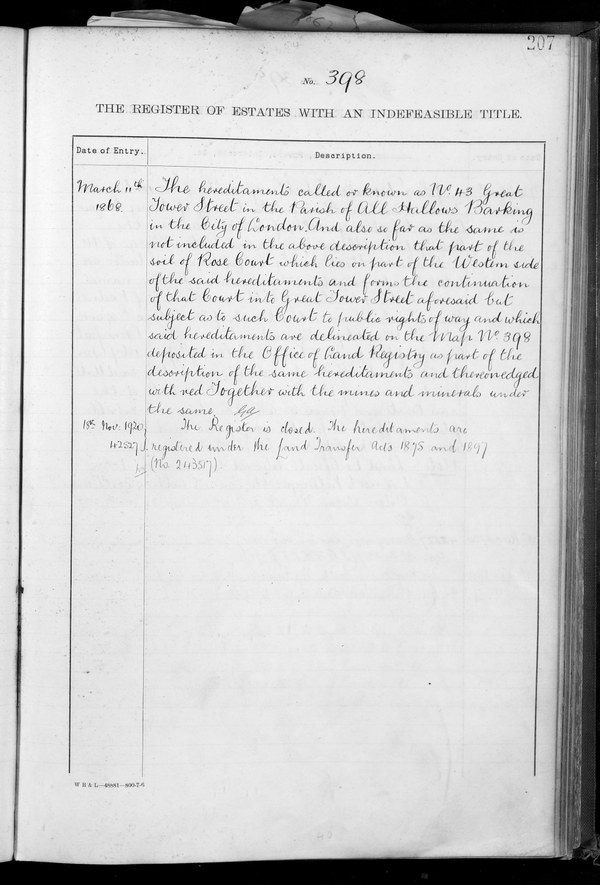 207
No. 398
THE REGISTER OF ESTATES WITH AN INDEFEASIBLE TITLE.
Date of Entry.
Description.
March 11th
1868
The hereditaments called or known as No. 43 Great
Tower Street in the Parish of All Hallows Barking
in the City of London. And also so far as the same is
not included in the above description that part of the
soil of Rose Court which lies on part of the Western side
of the said hereditaments and forms the continuation
of that Court into Great Tower Street aforesaid but
subject as to such Court to public rights of way and which
said hereditaments are delineated on the Map No. 398
deposited in the Office of Land Registry as part of the
description of the same hereditaments and thereon edged
with red Together with the mines and minerals under
the same
18th Nov. 1920
42527
The Register is closed. The hereditaments are
registered under the Land Transfer Acts 1875 and 1897
(No. 243517)